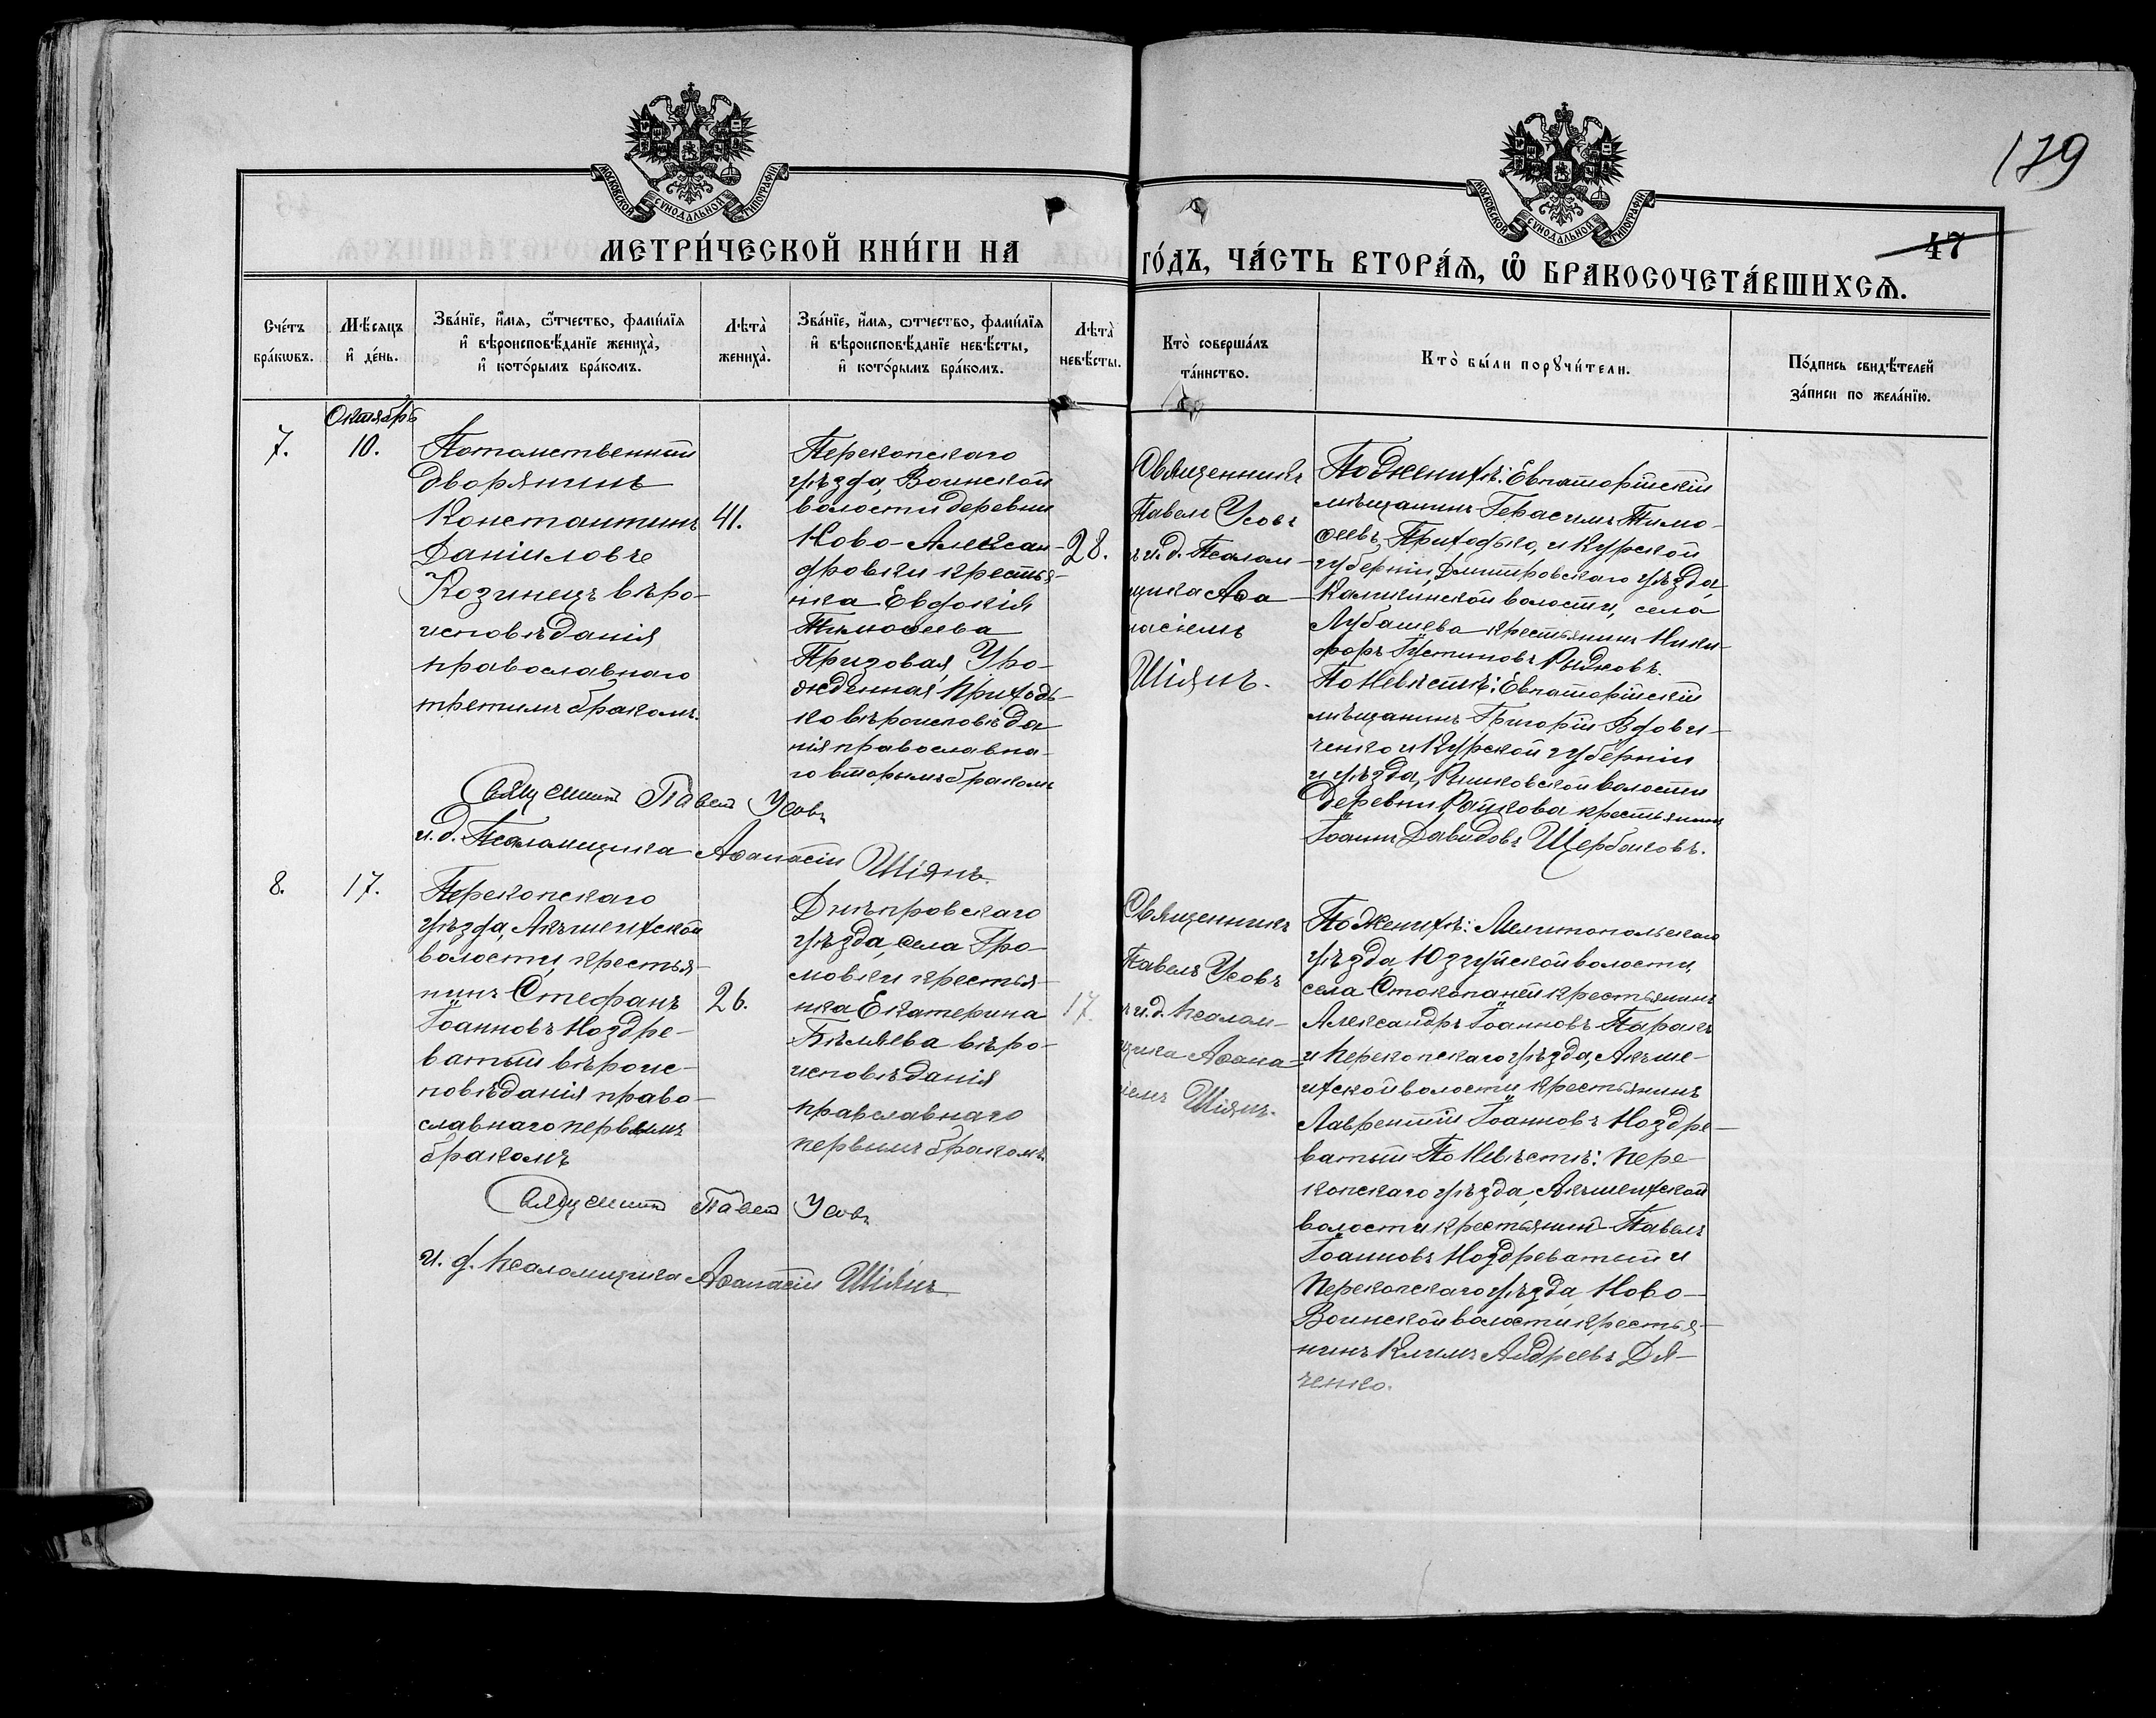 179
47
МОСКОВСКОЙ СѴНОДАЛЬНОЙ ТИПОГРАФІИ
МОСКОВСКОЙ СѴНОДАЛЬНОЙ ТИПОГРАФІИ
МЕТРИ́ЧЕСКОЙ КНИ́ГИ НА
ГО́ДЪ, ЧА́СТЬ ВТОРА́Ѧ, Ѽ БРАКОСОЧЕТА́ВШИХСѦ.
Сче́тъ
бра́кѡвъ.
Мѣ́сѧцъ
и҆ де́нь.
Зва́нїе, и҆́мѧ, ѻ҆́тчество, фами́лїѧ
и҆ вѣроисповѣ́данїе жениха̀,
и҆ кото́рымъ бра́комъ.
Лѣта̀
жениха̀.
Зва́нїе, и҆́мѧ, ѻ҆тчество, фами́лїѧ
и҆ вѣроисповѣ́данїе невѣ́сты,
и҆ кото́рымъ бра́комъ.
Лѣта̀
невѣ́сты.
Кто̀ соверша́лъ
та́инство.
Кто̀ бы́ли порꙋчи́тели.
По́дпись свидѣ́телей
за́писи по жела́нїю.
Октябрь
7.
10.
Потомственный
дворянинъ
Константинъ
Даніиловъ
Козинецъ вѣро-
исповѣданія
православнаго
третимъ бракомъ.
41.
Перекопскаго
уѣзда, Воинской
волости деревни
Ново-Алексан-
дровки крестья-
нка Евдокія
Тимоѳеева
Призовая, Уро-
жденная Приходь-
ко вѣроисповѣда
нія православна-
го вторымъ бракомъ
28.
Священникъ
Павелъ Усовъ
ъ и.д. Псалом-
щика Аѳа-
насіемъ
Шіянъ.
По Женихѣ: Евпаторійскій
мѣщанинъ Герасимъ Тимо-
ѳеевъ Приходько, и Курской
губерніи, Дмитровскаго уѣзда,
волости, села
Лубашева крестьянинъ Ники-
форъ Густиновъ Рыжковъ.
По Невѣстѣ: Евпаторійскій
мѣщанинъ Григорій Вдови-
ченко и Курской губерніи
и уѣзда, волости
Деревни крестьянинъ
Іоаннъ Давидовъ Щербаковъ.
Священникъ Павелъ Усовъ
и.д. Псаломщика Аѳанасій Шіянъ.
8.
17.
Перекопскаго
уѣзда, Акъшеихской
волости, крестья-
нинъ Стефанъ
Іоанновъ Ноздре-
ватый вѣроис-
повѣданія право-
славнаго первымъ
бракомъ
26.
Днѣпровскаго
уѣзда, села Гро-
мовки крестья-
нка Екатерина
Бѣляева вѣро-
исповѣданія
православнаго
первымъ бракомъ.
17.
Священникъ
Павелъ Усовъ
ъ и.д. Псалом-
щика Аѳана-
іемъ Шіянъ.
По Женихѣ: Мелитопольскаго
уѣзда, Юзгуйской волости,
села Стокопаней крестьянинъ
Александръ Іоанновъ Паракъ
и Перекопскаго уѣзда, Акъше-
ихской волости крестьянинъ
Лаврентій Іоанновъ Ноздре-
ватый По Невѣстѣ: Пере-
копскаго уѣзда, Акъшеихской
волости крестьянинъ Павелъ
Іоанновъ Ноздреватый и
Перекопскаго уѣзда, Ново-
Воинской волости, крестья-
нинъ Климъ Андреевъ Дя-
ченко.
Священникъ Павелъ Усовъ
и.д. Псаломщика Аѳанасій Шіянъ